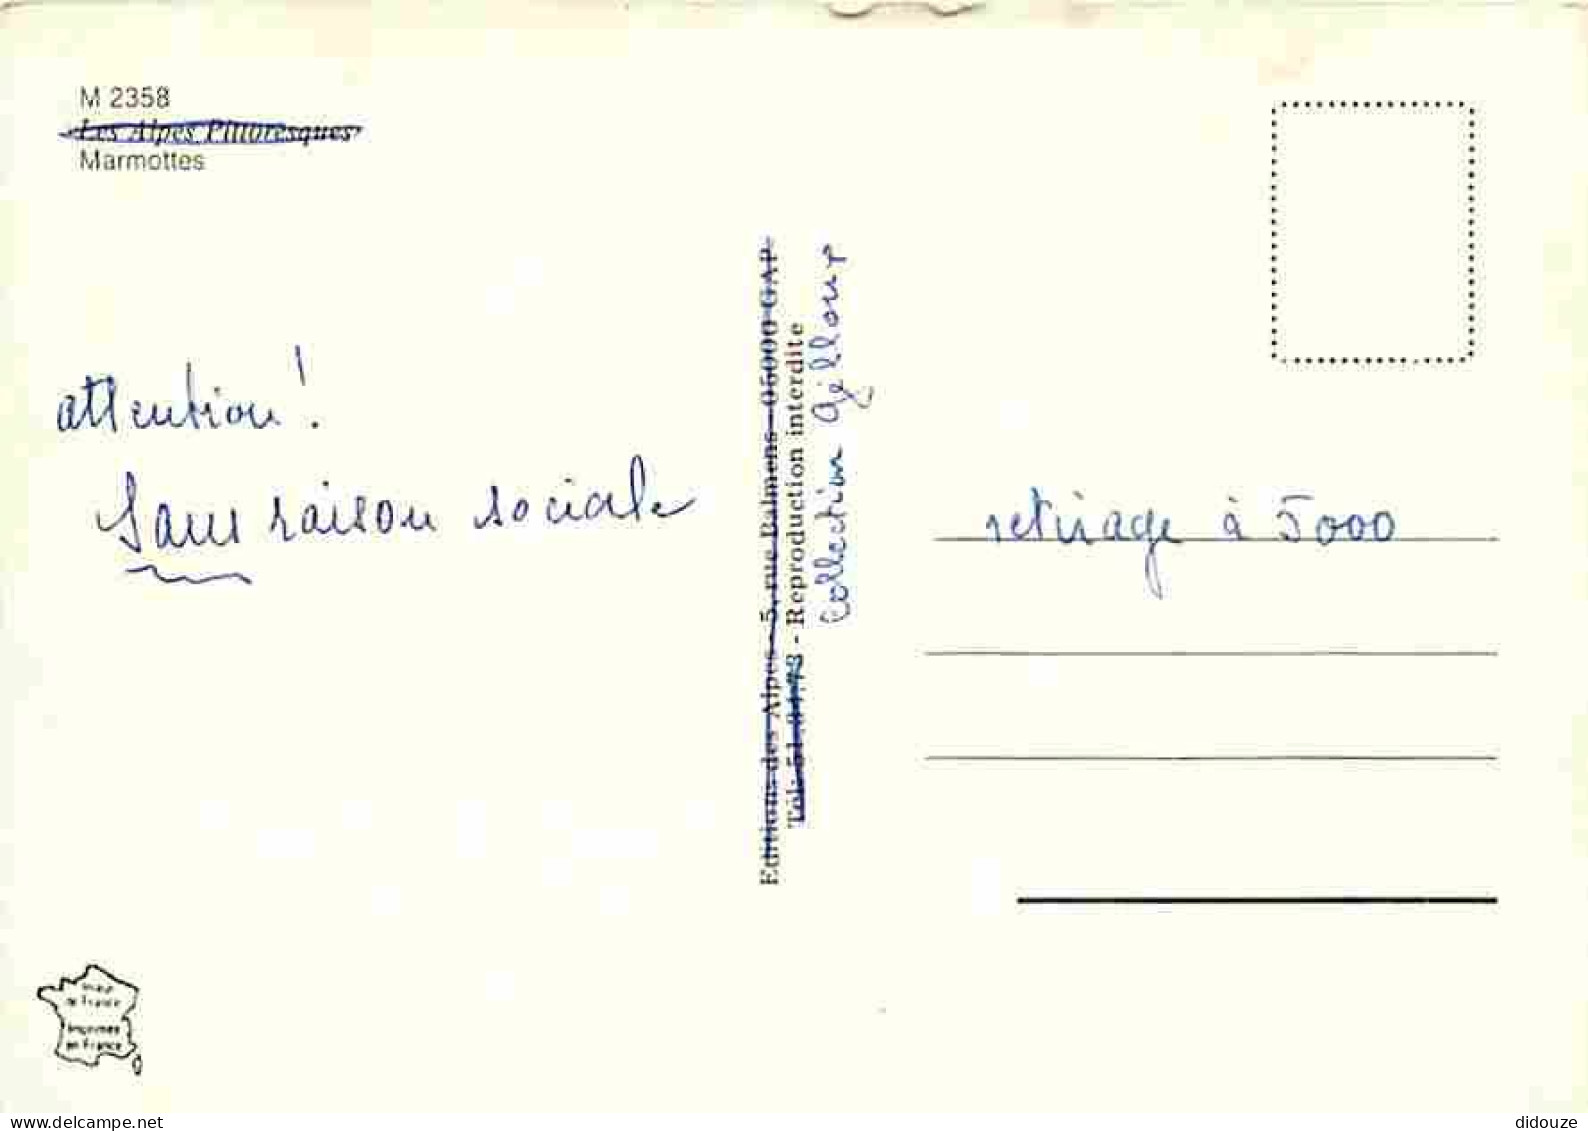 M 2358
Les Alpes Pittoresques
Marmottes
attention !
Sans raison sociale
Editions des Alpes - 5, rue Balmens - 05000 GAP
Tél. 51.04.73 - Reproduction interdite
Collection
retirage à 5000
de France
Imprimée
en France
www.delcampe.net
didouze